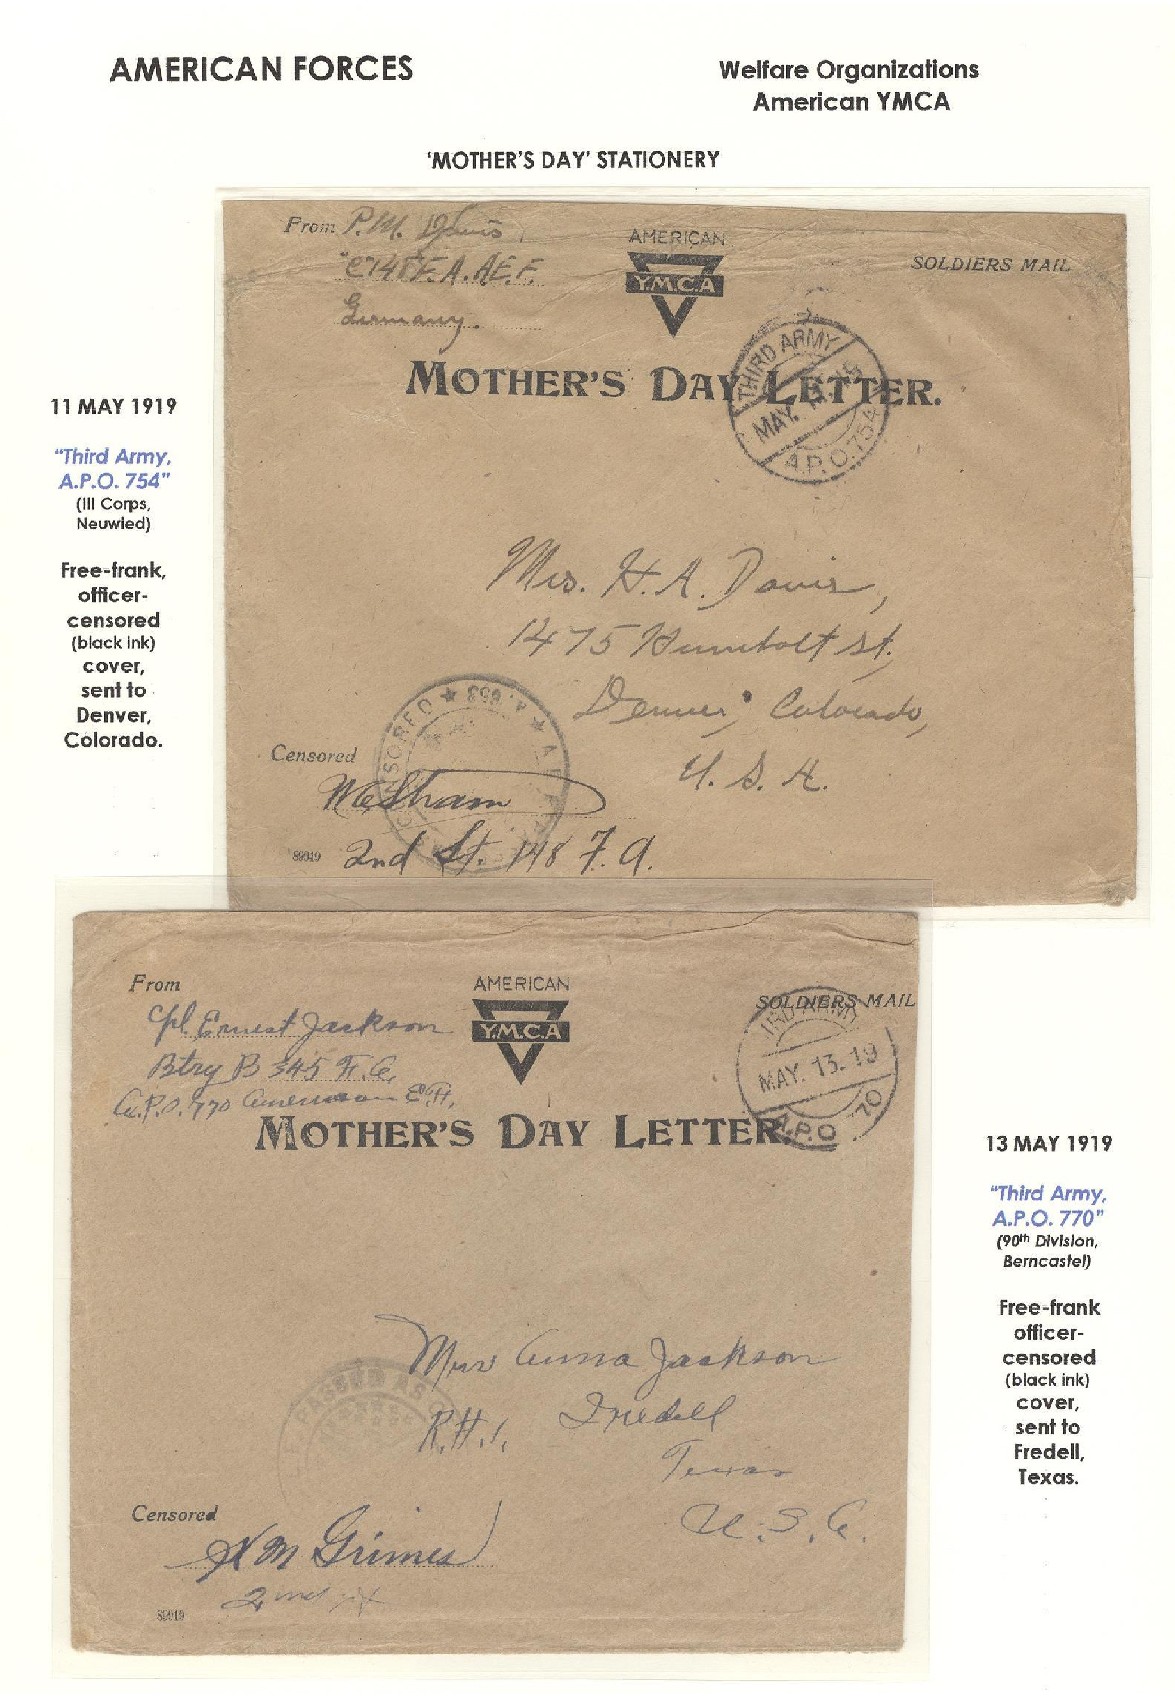 AMERICAN FORCES
Welfare Organizations
American YMCA
'MOTHER'S DAY' STATIONERY
From P.M. Davis
"C" 148 F.A. A.E.F.
Germany.
AMERICAN
Y.M.C.A
SOLDIERS MAIL
MOTHER'S DAY LETTER.
THIRD ARMY
MAY. 19
A.P.O. 754
Mrs. H. A. Davis,
1475 Humbolt St.
Denver, Colorado,
U. S. A.
CENSORED
A.E.F.
Censored
2nd Lt. 148 F.A.
89919
11 MAY 1919
"Third Army,
A.P.O. 754"
(III Corps,
Neuwied)
Free-frank,
officer-
censored
(black ink)
cover,
sent to
Denver,
Colorado.
From
Cpl. Ernest Jackson
Btry B 345 F.A.
A.P.O. 770 American E.F.
AMERICAN
Y.M.C.A
SOLDIERS MAIL
MOTHER'S DAY LETTER.
IRD ARMY
MAY. 13. 19
A.P.O 70
Anna Jackson
Iredell
Texas
U.S.A.
PASSED AS
Censored
Grimes
2nd Lt
89919
13 MAY 1919
"Third Army,
A.P.O. 770"
(90th Division,
Berncastel)
Free-frank
officer-
censored
(black ink)
cover,
sent to
Fredell,
Texas.